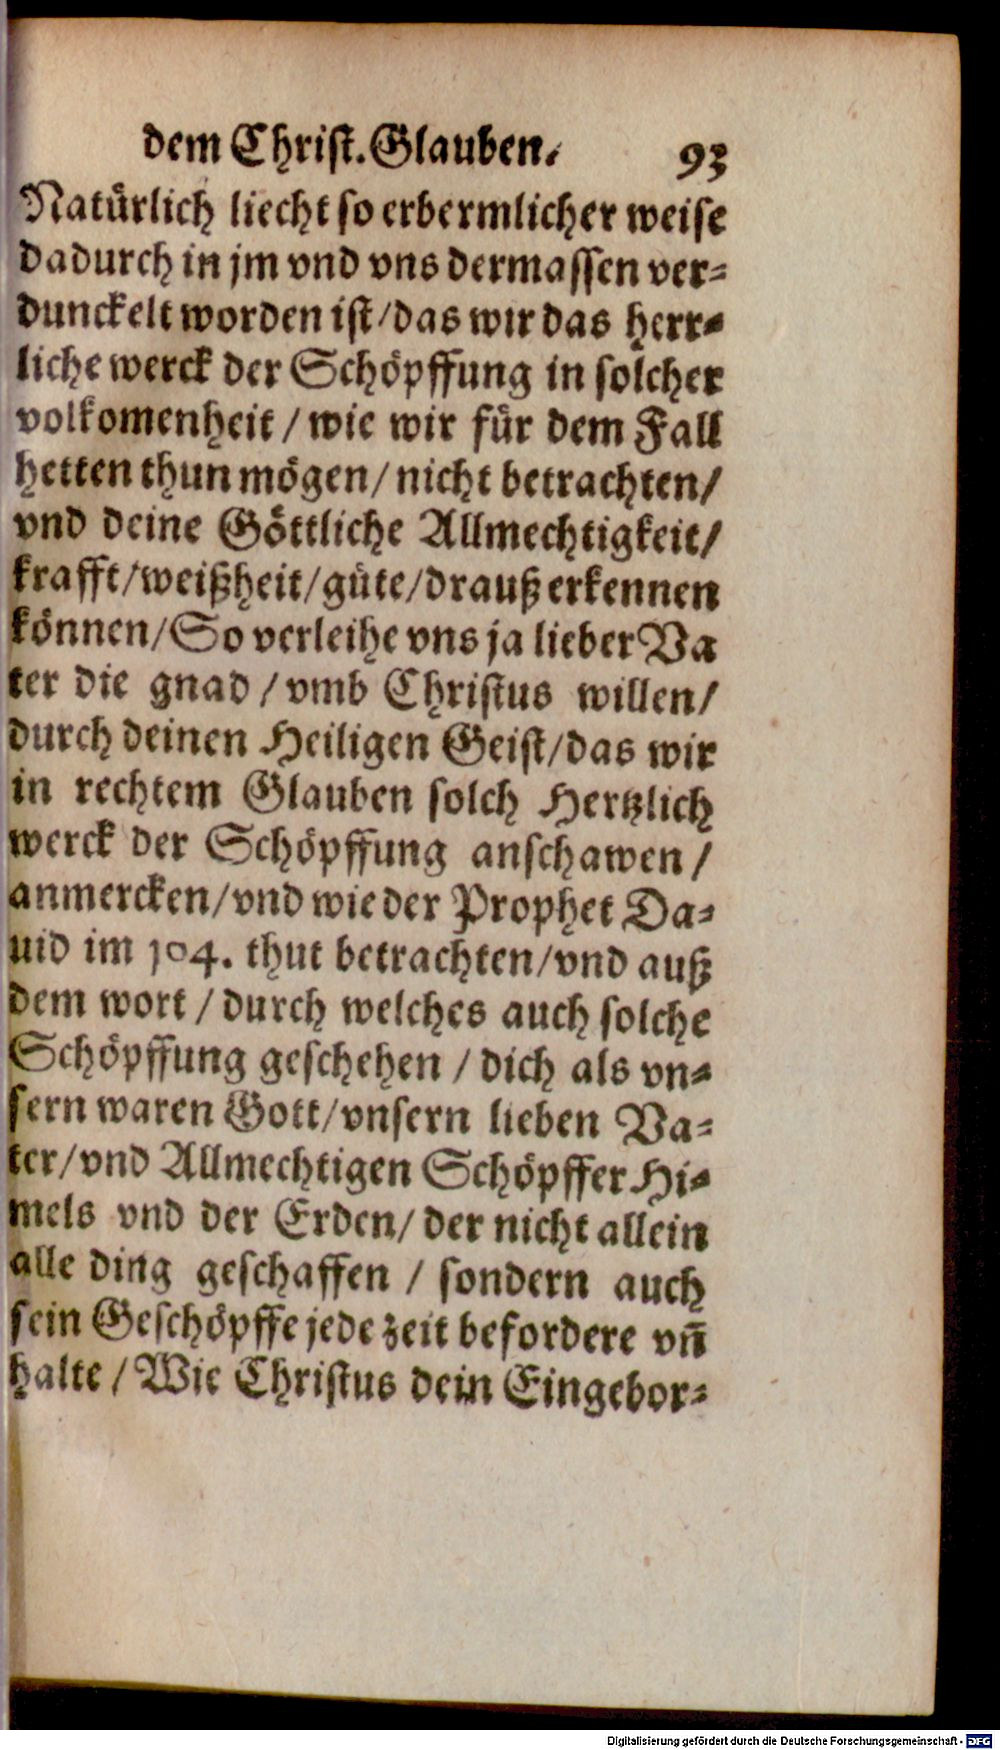 dem Christ. Glauben. 93
Natürlich liecht so erbermlicher weise
dadurch in jm vnd vns dermassen ver-
dunckelt worden ist/das wir das herr-
liche werck der Schöpffung in solcher
volkomenheit / wie wir für dem Fall
hetten thun mögen/ nicht betrachten/
vnd deine Göttliche Allmechtigkeit/
krafft/weißheit/güte/drauß erkennen
können/So verleihe vns ja lieber Va
ter die gnad / vmb Christus willen/
durch deinen Heiligen Geist/das wir
in rechtem Glauben solch Hertzlich
werck der Schöpffung anschawen /
anmercken/vnd wie der Prophet Da-
uid im 104. thut betrachten/vnd auß
dem wort / durch welches auch solche
Schöpffung geschehen / dich als vn-
sern waren Gott/vnsern lieben Va-
ter/vnd Allmechtigen Schöpffer Hi-
mels vnd der Erden/ der nicht allein
alle ding geschaffen / sondern auch
sein Geschöpffe jede zeit befordere vn̄
halte / Wie Christus dein Eingebor-
Digitalisierung gefördert durch die Deutsche Forschungsgemeinschaft - DFG